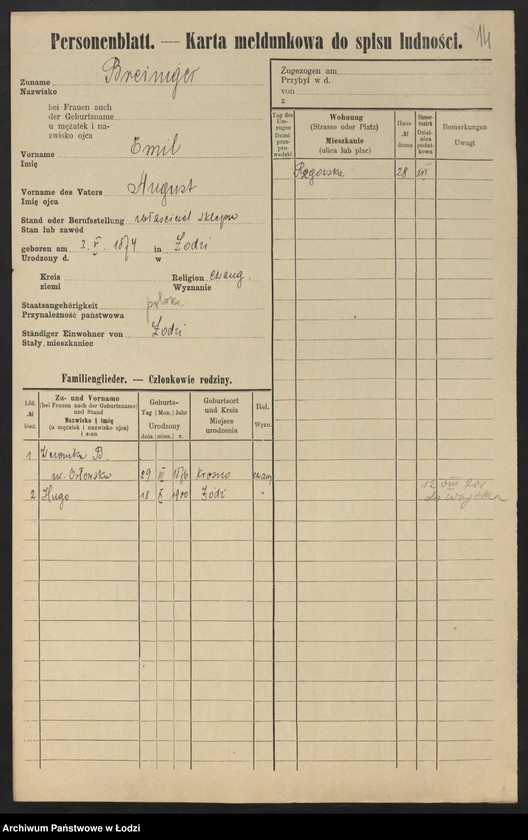 14
Personenblatt. — Karta meldunkowa do spisu ludności.
Zuname Breiniger
Nazwisko
bei Frauen auch
der Geburtsname
u mężatek i na-
zwisko ojca
Vorname Emil
Imię
Vorname des Vaters August
Imię ojca
Stand oder Berufsstellung właściciel sklepu
Stan lub zawód
geboren am 3. V. 1874 in Łodzi
Urodzony d. w
Kreis Religion ewang.
ziemi Wyznanie
Staatsangehörigkeit polska
Przynależność państwowa
Ständiger Einwohner von Łodzi
Stały, mieszkaniec
Zugezogen am
Przybył w d.
von
z
Tag des Um-zuges Dzień prze-pro-wadzki
Wohnung (Strasse oder Platz) Mieszkanie (ulica lub plac)
Haus № domu
Steuer-bezirk Dziel-nica podat-kowa
Bemerkungen Uwagi
Rzgowska 28 XII
Familienglieder. — Członkowie rodziny.
Lfd. № bież.
Zu- und Vorname (bei Frauen auch der Geburtsname) und Stand Nazwisko i imię (u mężatek i nazwisko ojca) i stan
Geburts- Tag Mon. Jahr Urodzony dnia mies. r.
Geburtsort und Kreis Miejsce urodzenia
Rel. Wyzn.
1 Weronika B.
ur. Orłowska 29 III 1876 Krosno ewang
2 Hugo 18 X 1900 Łódź "
12 VIII 20r
do Wojska
Archiwum Państwowe w Łodzi